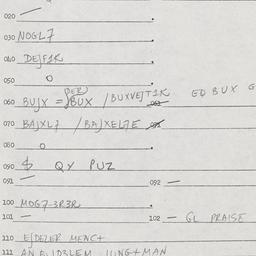 020 —
030 NOGL7
040 DEJF1K
050 0
060 BUJX = PER BUX / BUXVEJT1K EQ BUX G
070 BAJXL7 / BAJXEL7E
080 0
090 $ QY PUZ
091 — 092 —
100 MOG7-3R3R
101 — 102 — GL PRAISE
110 EJDEZER MENCT
111 JUNG+MAN